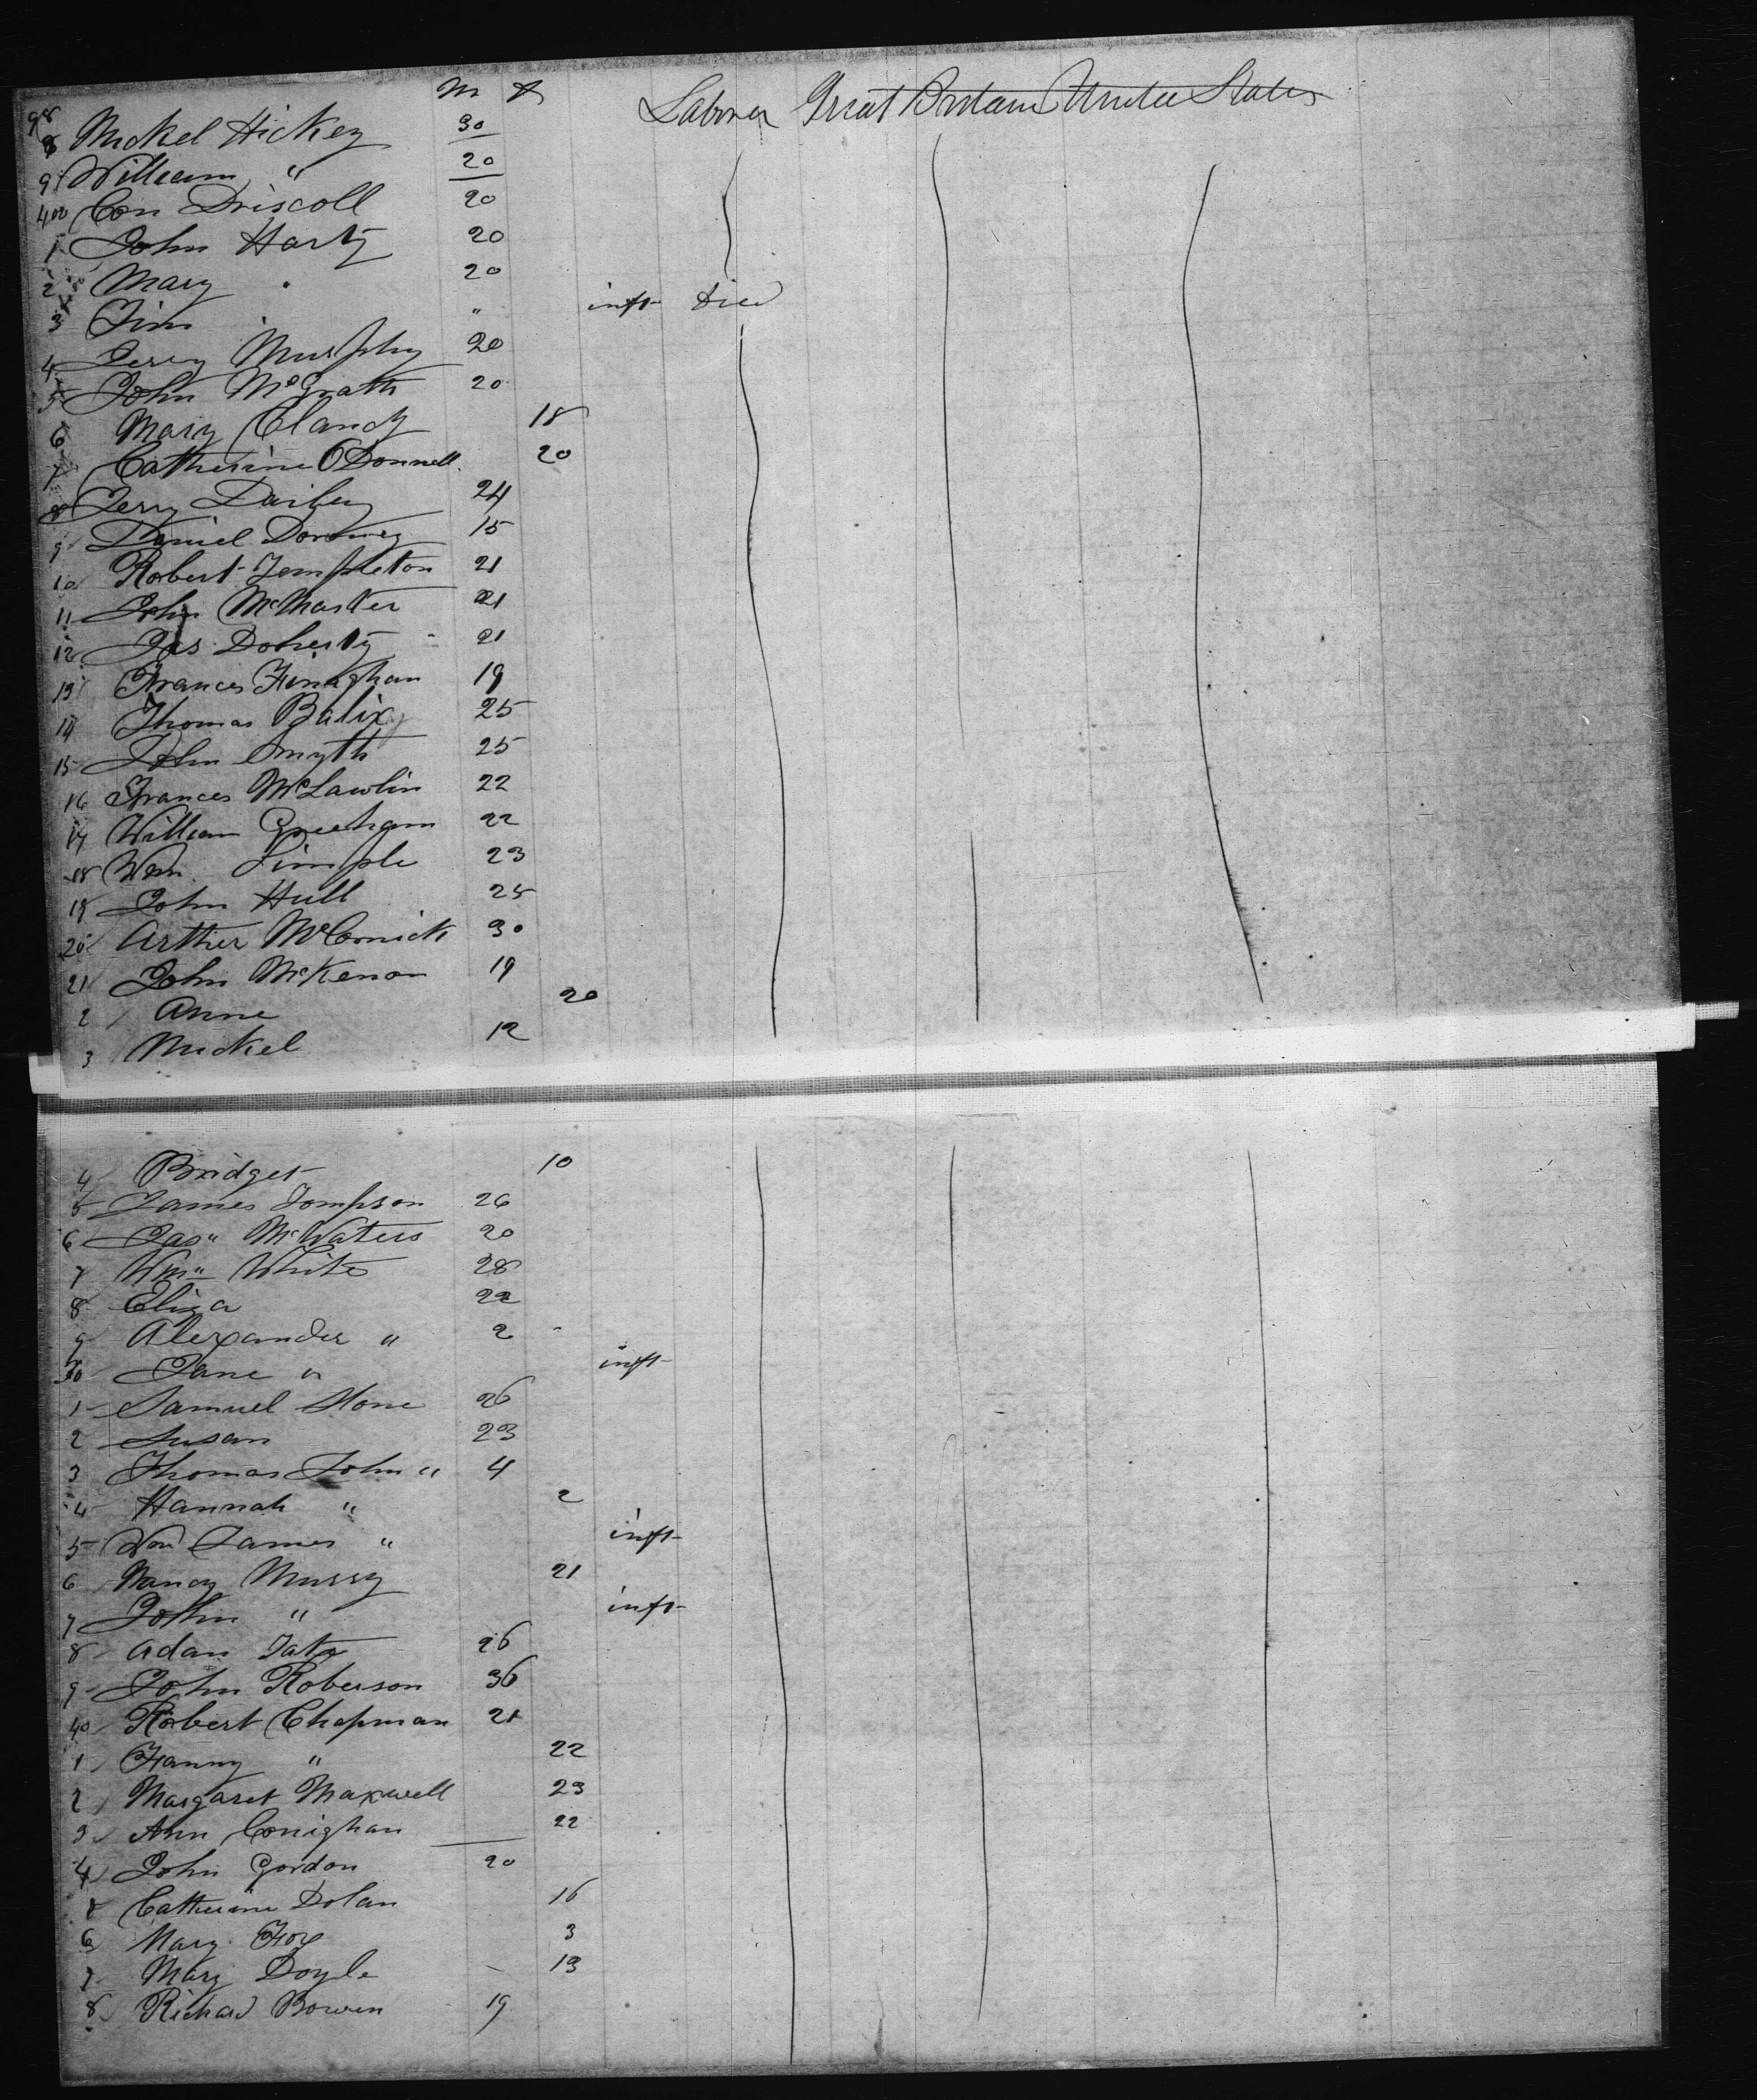 M F
98 Mickel Hickey 30 Laborer Great Britain United States
9 William " 20
400 Con Driscoll 20
1 John Harty 20
2 Mary 20
3 Tim " inft Died
4 Jerry Murphy 20
5 John McGrath 20
6 Mary Clancy 18
7 Catherine O'Donnell 20
8 Jerry 24
9 Daniel Downey 15
10 Robert Templeton 21
11 John McMaster 21
12 Jas Doherty 21
13 Frances Finighan 19
14 Thomas 25
15 John Smyth 25
16 Frances McLawlin 22
17 William 22
18 Wm. Simple 23
19 John Hull 25
20 Arther McCormick 30
21 John McKenon 19
2 Anne 20
3 Mickel 12
4 Bridget 10
5 James Tompson 26
6 Jas" McWaters 20
7 Wm" White 28
8 Eliza 22
9 Alexander " 2
30 Jane " inft
1 Samuel Stone 26
2 Susan 23
3 Thomas John " 4
4 Hannah " 2
5 Wm James " inft
6 Nancy Murry 21
7 John " inft
8 Adam Tate 26
9 John Roberson 36
40 Robert Chapman 21
1 Fanny " 22
2 Margaret Maxwell 23
3 Ann Conighan 22
4 John Gordon 20
Catherine Dolan 16
6 Mary Foy 3
7 Mary Doyle 13
8 Richard Bowen 19